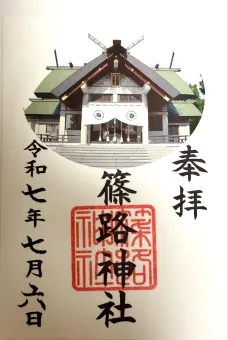 奉拝
篠路神社
篠路神社
令和七年七月六日